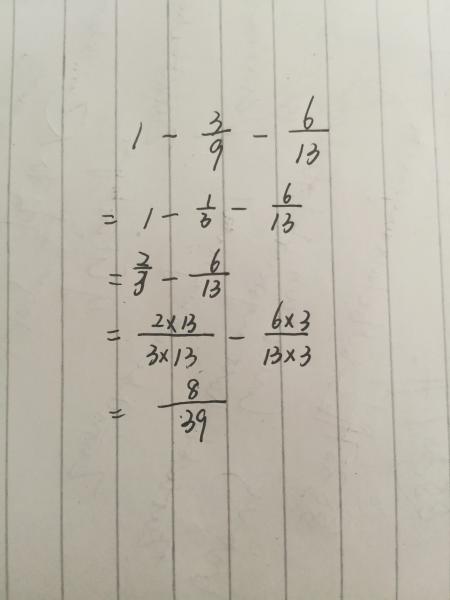 1 - 3/9 - 6/13
= 1 - 1/3 - 6/13
= 2/3 - 6/13
= 2×13/3×13 - 6×3/13×3
= 8/39